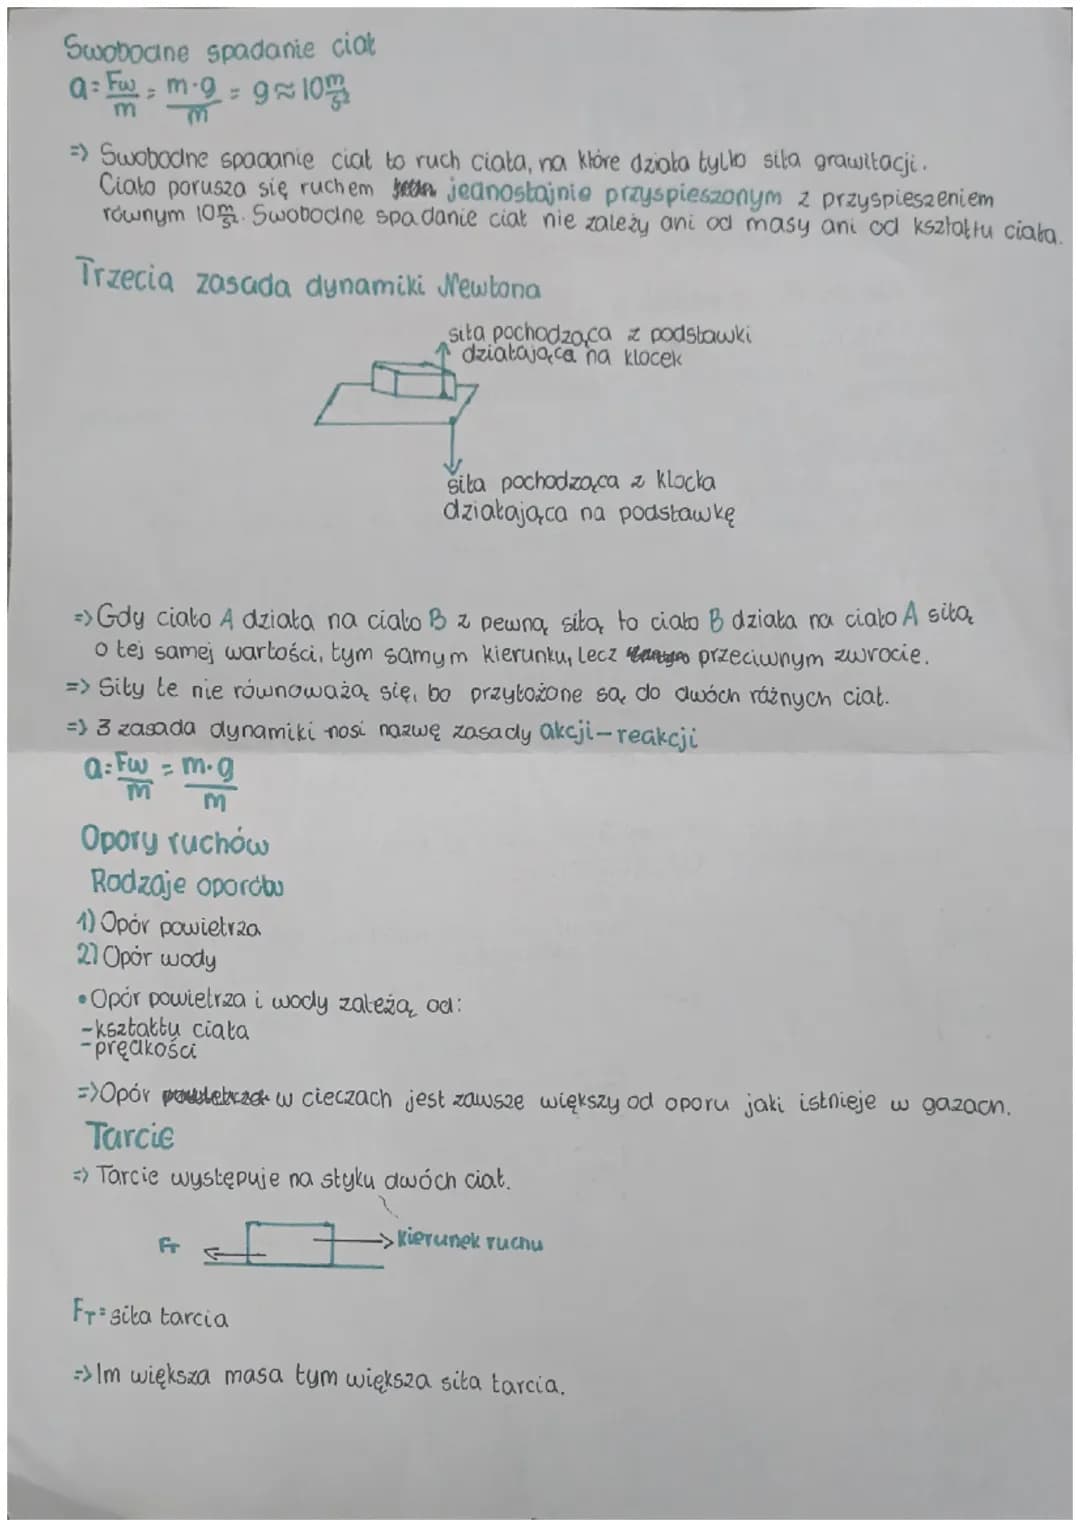 Swobodne spadanie ciał
a = Fw/m = m·g/m = g ≈ 10 m/s²
=> Swobodne spadanie ciał to ruch ciała, na które działa tylko siła grawitacji.
Ciało porusza się ruchem jednostajnie przyspieszonym z przyspieszeniem
równym 10 m/s². Swobodne spadanie ciał nie zależy ani od masy ani od kształtu ciała.
Trzecia zasada dynamiki Newtona
siła pochodząca z podstawki
działająca na klocek
siła pochodząca z klocka
działająca na podstawkę
=> Gdy ciało A działa na ciało B z pewną siłą, to ciało B działa na ciało A siłą
o tej samej wartości, tym samym kierunku, lecz przeciwnym zwrocie.
=> Siły te nie równoważą się, bo przyłożone są do dwóch różnych ciał.
=> 3 zasada dynamiki nosi nazwę zasady akcji-reakcji
a = Fw/m = m·g/m
Opory ruchów
Rodzaje oporów
1) Opór powietrza
2) Opór wody
• Opór powietrza i wody zależą od:
- kształtu ciała
- prędkości
=> Opór w cieczach jest zawsze większy od oporu jaki istnieje w gazach.
Tarcie
=> Tarcie występuje na styku dwóch ciał.
FT kierunek ruchu
FT = siła tarcia
=> Im większa masa tym większa siła tarcia.